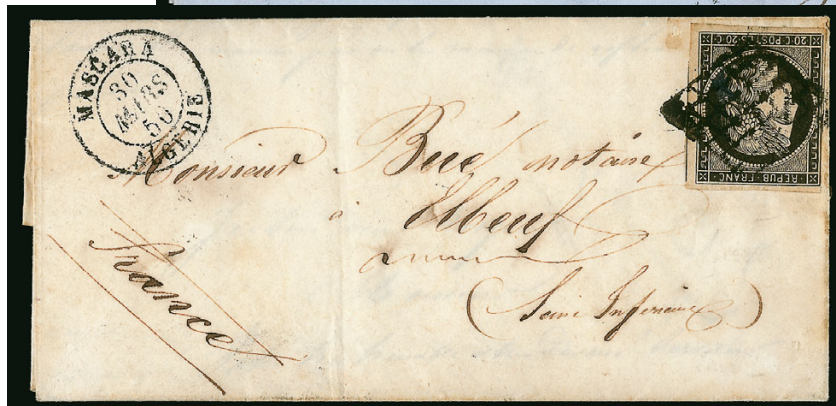 MASCARA
30
MARS
50
ALGERIE
20 C POSTES 20 C
REPUB FRANC
Monsieur Bué notaire
à
Elbeuf
(Seine Inférieure)
France